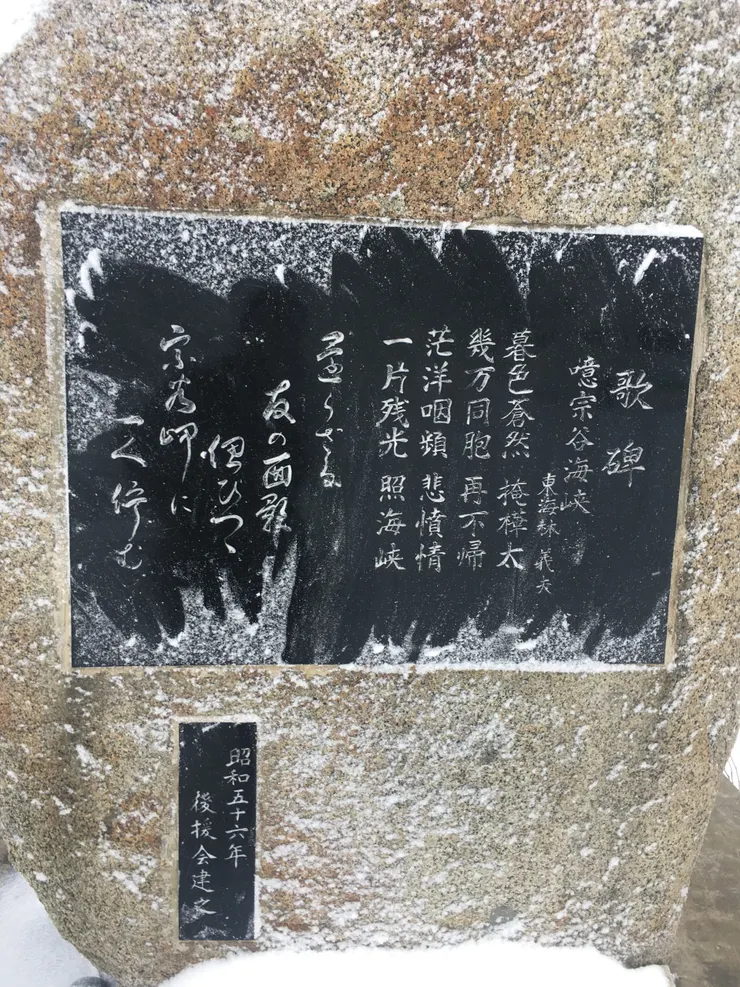 歌碑
噫宗谷海峡
東海林 義夫
暮色蒼然 掩樺太
幾万同胞 再不帰
茫洋咽頻 悲憤情
一片残光 照海峡
還らざる
友の面影
偲びつゝ
宗谷岬に
一人佇む
昭和五十六年
後援会建之